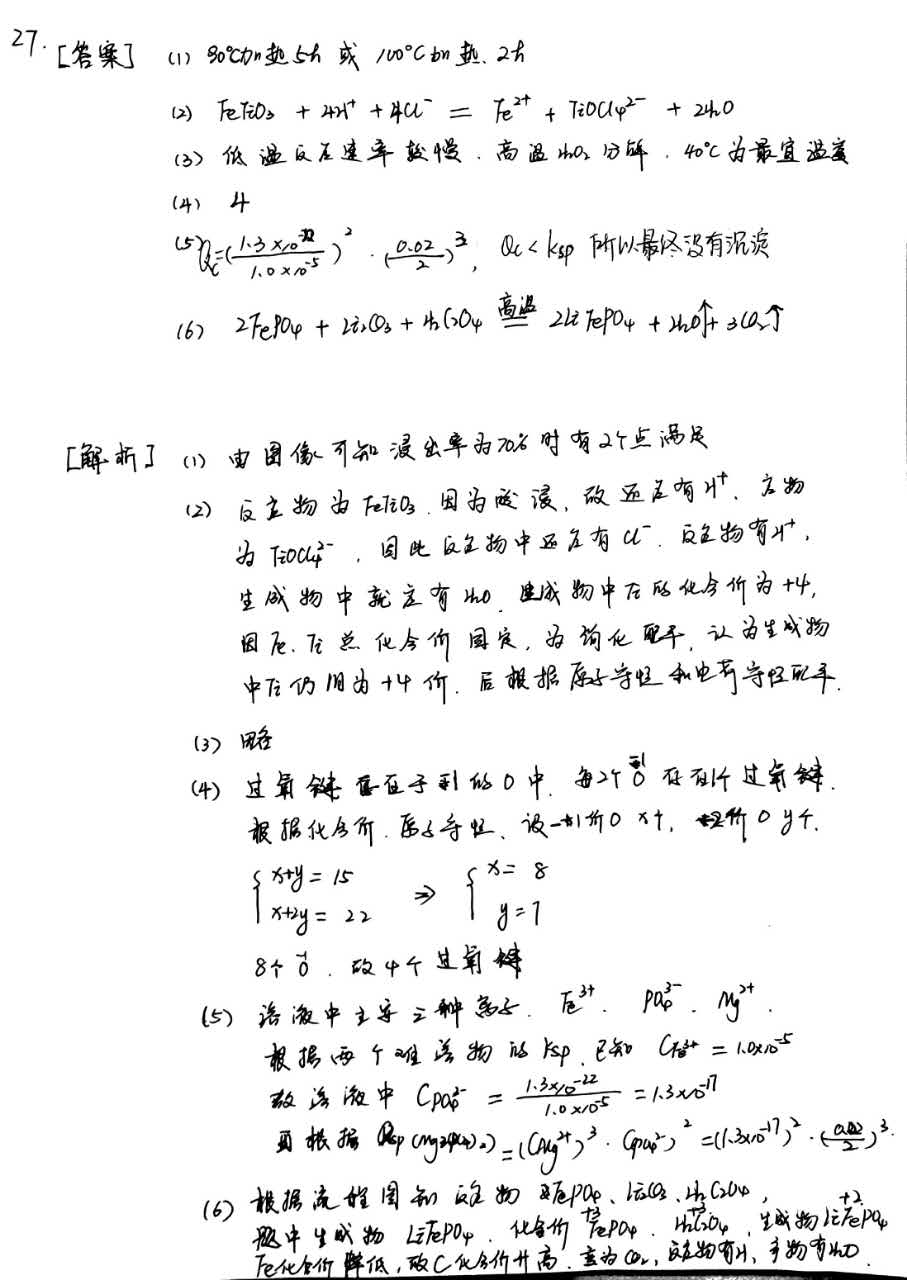 27. [答案] (1) 90℃加热5h 或 100℃加热.2h
(2) FeTiO₃ + 4H⁺ + 4Cl⁻ = Fe²⁺ + TiOCl₄²⁻ + 2H₂O
(3) 低温反应速率较慢.高温H₂O₂分解.40℃为最宜温度
(4) 4
(5) Qc=(1.3×10⁻²²/1.0×10⁻⁵)²·(0.02/2)³, Qc<Ksp 所以最终没有沉淀
(6) 2FePO₄ + Li₂CO₃ + H₂C₂O₄ 高温= 2LiFePO₄ + H₂O↑ + 3CO₂↑
[解析] (1) 由图像可知浸出率为70%时有2个点满足
(2) 反应物为FeTiO₃.因为酸浸,故还应有H⁺.产物
为TiOCl₄²⁻,因此反应物中还应有Cl⁻.反应物有H⁺,
生成物中就应有H₂O.生成物中Ti的化合价为+4,
因Fe.Ti总化合价固定,为简化配平,认为生成物
中Ti仍旧为+4价.后根据原子守恒和电荷守恒配平.
(3) 略
(4) 过氧键存在于-1的O中.每2个O⁻¹存在1个过氧键.
根据化合价.原子守恒、设-1价O x个,-2价O y个.
{ x+y = 15
x+2y = 22 ⇒ { x = 8
y = 7
8个O⁻¹.故4个过氧键
(5) 溶液中主要三种离子.Fe³⁺.PO₄³⁻.Mg²⁺.
根据两个难溶物的Ksp.已知 CFe³⁺ = 1.0×10⁻⁵
故溶液中 CPO₄³⁻ = 1.3×10⁻²²/1.0×10⁻⁵ = 1.3×10⁻¹⁷
再根据 Qsp(Mg₃(PO₄)₂) = (CMg²⁺)³·(CPO₄³⁻)² = (1.3×10⁻¹⁷)²·(0.02/2)³.
(6) 根据流程图知反应物 FePO₄、Li₂CO₃、H₂C₂O₄,
题中生成物 LiFePO₄.化合价 +3FePO₄.+3H₂C₂O₄.生成物 +2LiFePO₄
Fe化合价降低,故C化合价升高.应为CO₂,反应物有H,产物有H₂O.